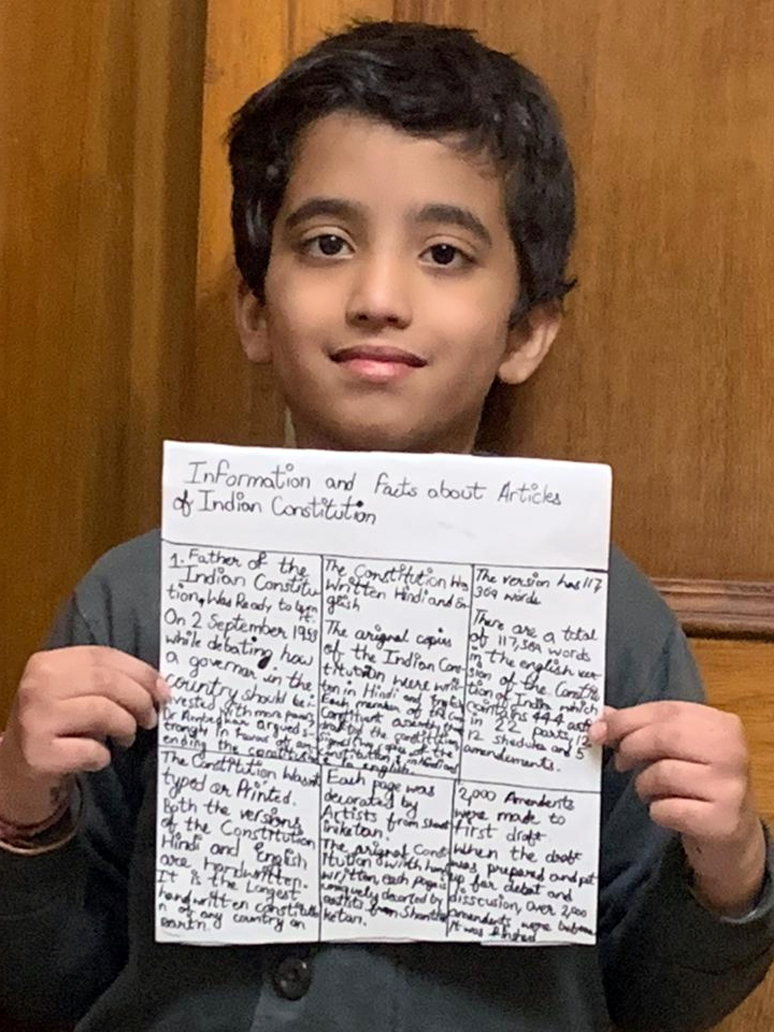 Information and facts about Articles
of Indian Constitution
1. Father of the
Indian Constitu
tion, Was Ready to
it.
On 2 September 1953
while debating how
a governor in the
country should be i-
nvested with more
Dr argued s-
trongly in favour of am
ending the constitution
The Constitution Has
Written Hindi and En
glish
The orignal copies
of the Indian Cons-
titution were writ-
ten in Hindi and English
Each member of the
Constituent assembly
the constitution,
one copies of the
Constitution in Hindi and
English.
The version has 117
369 words
There are a total
of 117,369 words
in the english ver
sion of the Constitu
tion of India which
contains 444
in 22 parts, 12
12 shedules and 5
amendements.
The Constitution Wasnt
typed or Printed.
Both the versions
of the Constitution
Hindi and English
are handwritten.
It is the Longest
handwritten constitutio
n of any country on
Earth.
Each page was
decorated by
Artists from Shant
iniketan.
The orignal Const
itution with han
written, each page is
uniquely decorted by
artists from Shantini
ketan.
2,000 Amendents
were made to
first draft
When the draft
was prepared and put
up for debat and
disscusion, Over 2,000
amendents were
it was finished